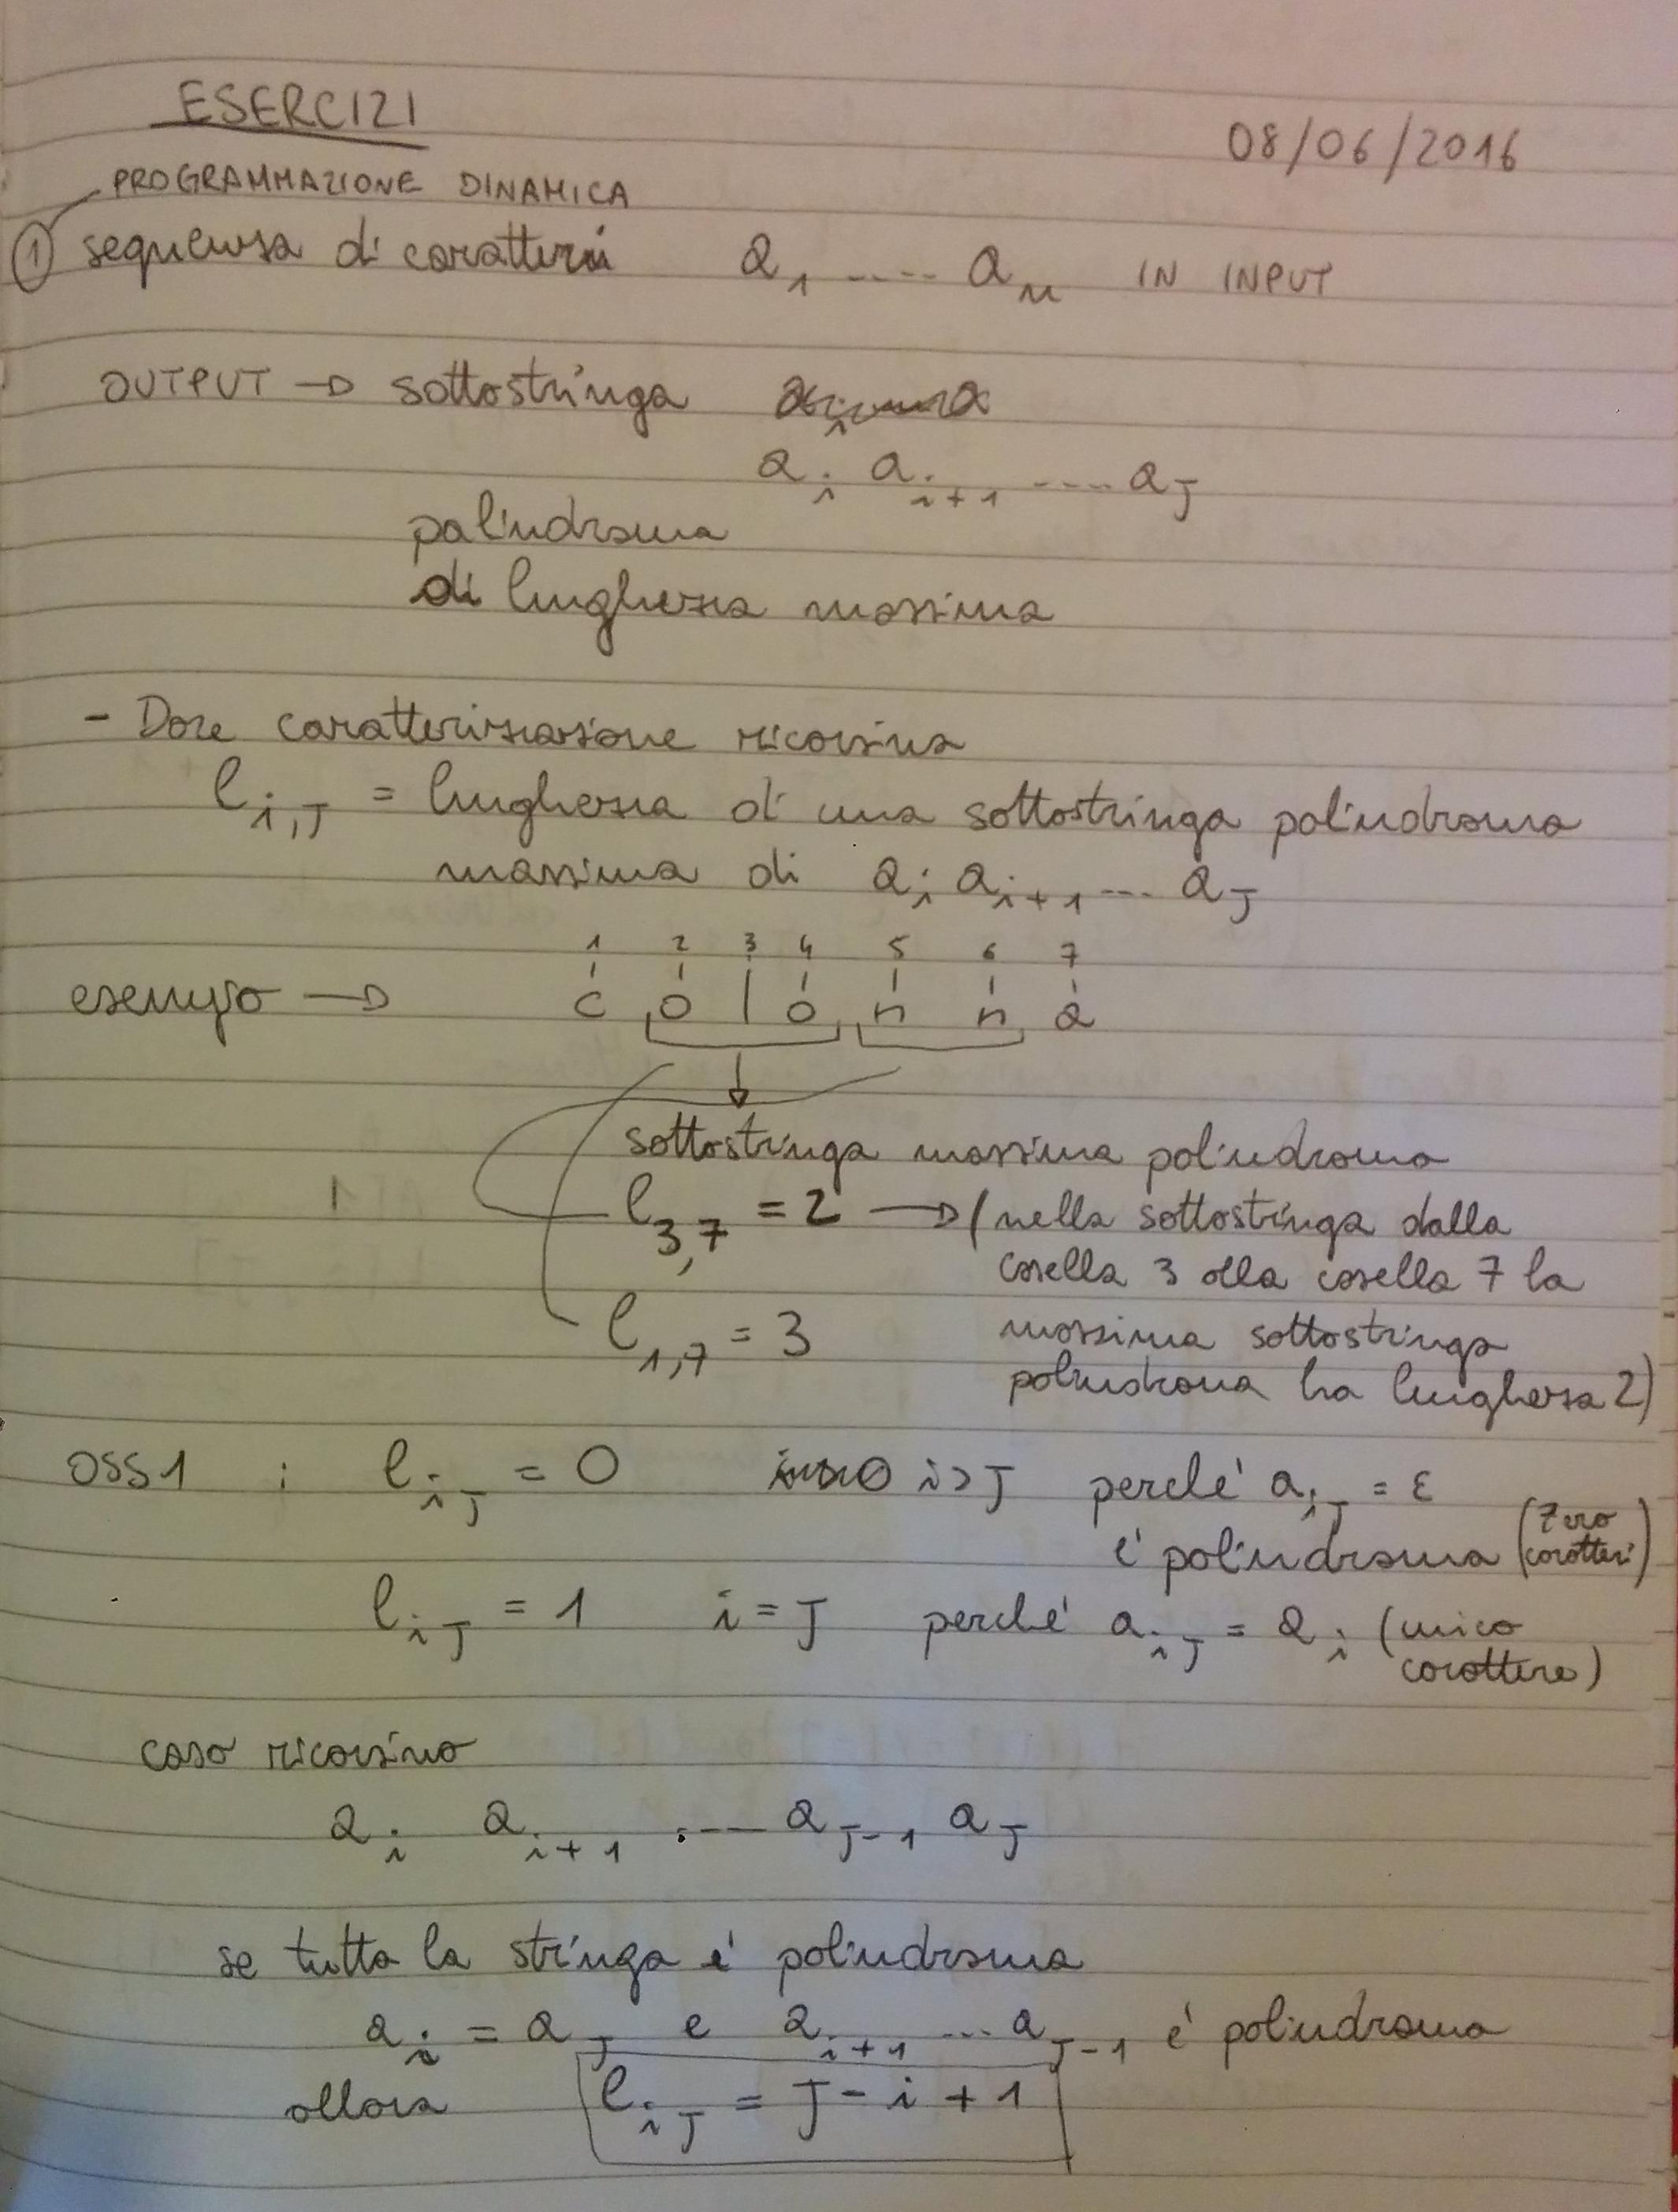 ESERCIZI
08/06/2016
PROGRAMMAZIONE DINAMICA
① sequenza di caratteri a₁ ---- aₙ IN INPUT
OUTPUT → sottostringa
aᵢ aᵢ₊₁ ---- a_J
palindroma
di lunghezza massima
- Dare caratterizzazione ricorsiva
l_{i,J} = lunghezza di una sottostringa palindroma
massima di aᵢ aᵢ₊₁ --- a_J
1 2 3 4 5 6 7
esempio → c o l o n n a
sottostringa massima palindroma
l_{3,7} = 2 → (nella sottostringa dalla
casella 3 alla casella 7 la
massima sottostringa
palindroma ha lunghezza 2)
l_{1,7} = 3
OSS1 : l_{iJ} = 0 i>J perché a_{iJ} = ε
è palindroma (zero caratteri)
l_{iJ} = 1 i=J perché a_{iJ} = aᵢ (unico
carattere)
caso ricorsivo
aᵢ aᵢ₊₁ ---- a_{J-1} a_J
se tutta la stringa è palindroma
aᵢ = a_J e aᵢ₊₁ --- a_{J-1} è palindroma
allora l_{iJ} = J - i + 1